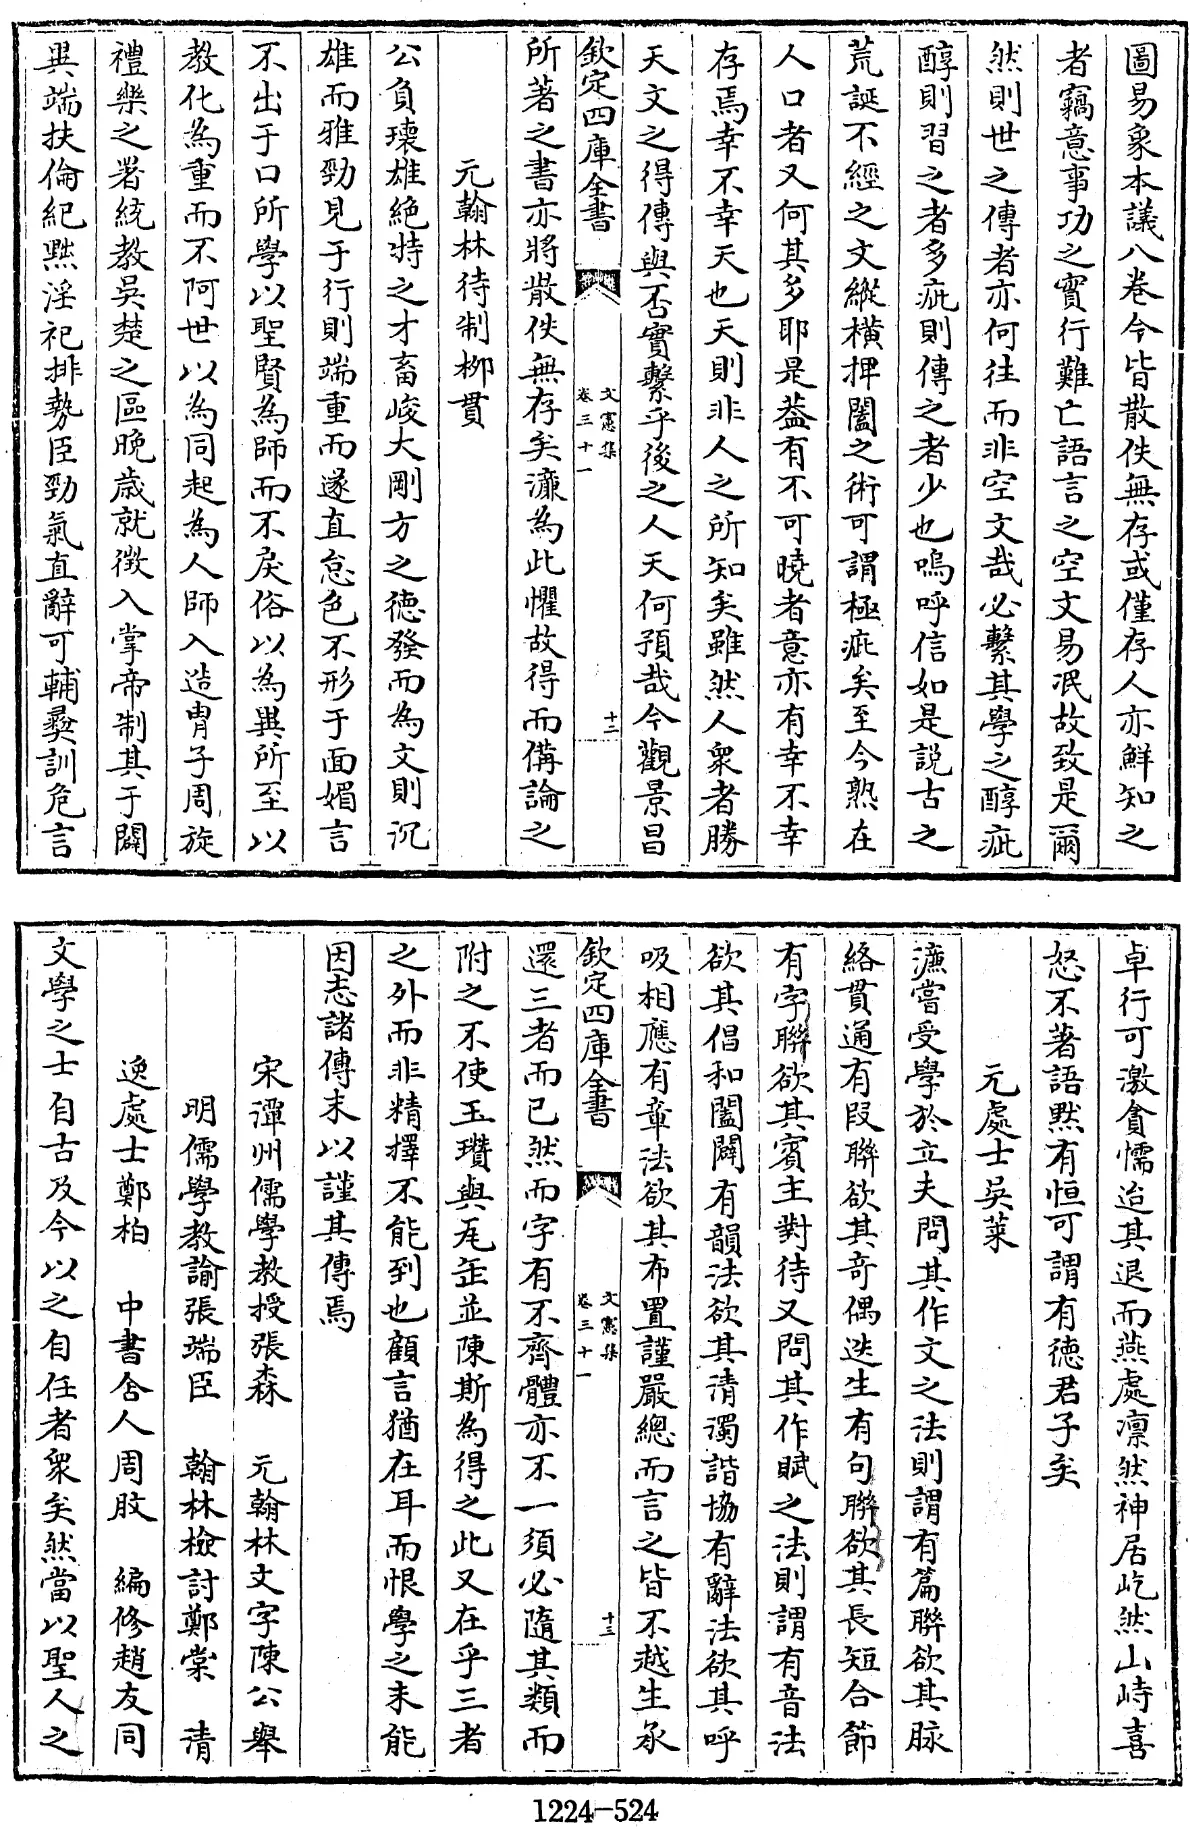 圖易象本議八巻今皆散佚無存或僅存人亦鮮知之
者竊意事功之實行難亡語言之空文易泯故致是爾
然則世之傳者亦何往而非空文哉必繫其學之醇疵
醇則習之者多疵則傳之者少也嗚呼信如是説古之
荒誕不經之文縱横捭闔之術可謂極疵矣至今熟在
人口者又何其多耶是葢有不可曉者意亦有幸不幸
存焉幸不幸天也天則非人之所知矣雖然人衆者勝
天文之得傳與否實繫乎後之人天何預哉今觀景昌
欽定四庫全書
文憲集
卷三十一
十二
所著之書亦將散佚無存矣濂為此懼故得而備論之
元翰林待制栁貫
公負瓌雄絶特之才畜峻大剛方之徳發而為文則沉
雄而雅勁見于行則端重而遂直怠色不形于面媚言
不出于口所學以聖賢為師而不戾俗以為異所至以
教化為重而不阿世以為同起為人師入造胄子周旋
禮樂之署統教吳楚之區晚歳就徴入掌帝制其于闢
異端扶倫紀黜淫祀排勢臣勁氣直辭可輔彛訓危言
卓行可激貪懦迨其退而燕處凛然神居屹然山峙喜
怒不著語黙有恒可謂有徳君子矣
元處士吳萊
濂嘗受學於立夫問其作文之法則謂有篇聯欲其脉
絡貫通有段聯欲其竒偶迭生有句聯欲其長短合節
有字聯欲其賓主對待又問其作賦之法則謂有音法
欲其倡和闔闢有韻法欲其清濁諧協有辭法欲其呼
吸相應有章法欲其布置謹嚴總而言之皆不越生承
欽定四庫全書
文憲集
卷三十一
十三
還三者而已然而字有不齊體亦不一須必隨其類而
附之不使玉瓚與瓦缶並陳斯為得之此又在乎三者
之外而非精擇不能到也顧言猶在耳而恨學之未能
因志諸傳末以謹其傳焉
宋潭州儒學教授張森　元翰林文字陳公舉
明儒學教諭張端臣　翰林檢討鄭棠　清
逸處士鄭柏　中書舍人周肢　編修趙友同
文學之士自古及今以之自任者衆矣然當以聖人之
1224-524